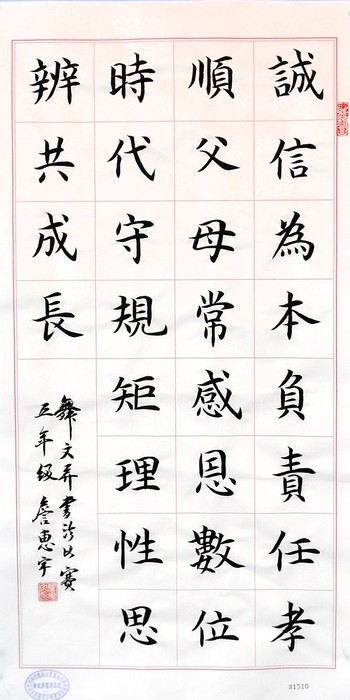 誠信為本負責任孝
順父母常感恩數位
時代守規矩理性思
辨共成長
舞文弄書法比賽
五年級詹惠宇
31510